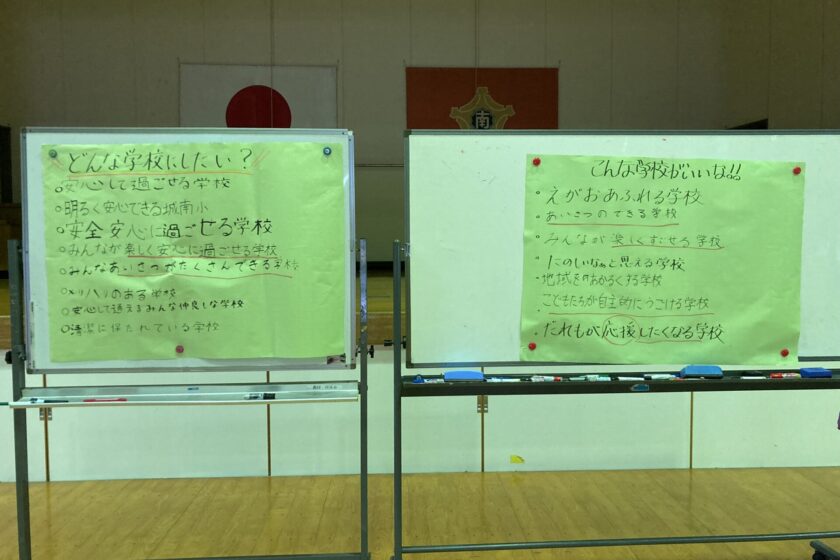 どんな学校にしたい?
安心して過ごせる学校
明るく安心できる城南小
安全安心に過ごせる学校
みんなが楽しく安心に過ごせる学校
みんなあいさつがたくさんできる学校
メリハリのある学校
安心して通えるみんな仲良しな学校
清潔に保たれている学校
南
こんな学校がいいな!!
えがおあふれる学校
あいさつのできる学校
みんなが楽しくすごせる学校
たのしいなぁと思える学校
地域を明かるくする学校
こどもたちが自主的にうごける学校
だれもが応援したくなる学校